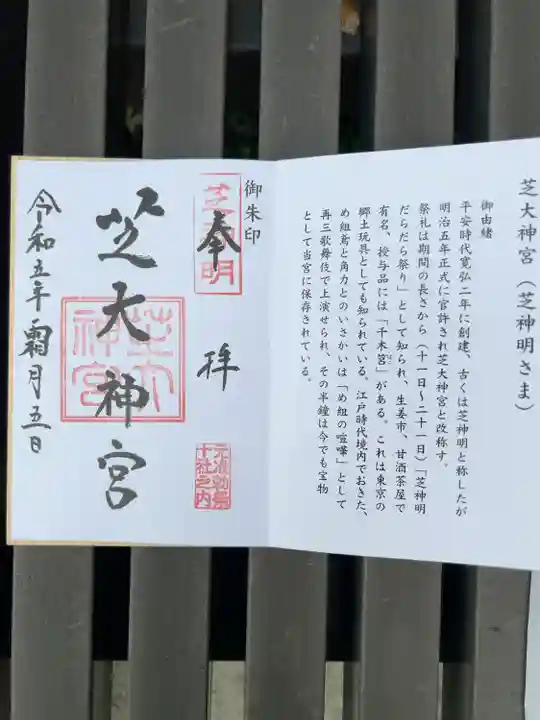 芝大神宮（芝神明さま）
御由緒
平安時代寛弘二年に創建、古くは芝神明と称したが
明治五年正式に官許され芝大神宮と改称す。
祭礼は期間の長さから（十一日～二十一日）「芝神明
だらだら祭り」として知られ、生姜市、甘酒茶屋で
有名、授与品には「千木筥」がある。これは東京の
郷土玩具としても知られている。江戸時代境内でおきた、
め組鳶と角力とのいさかいは「め組の喧嘩」として
再三歌舞伎で上演せられ、その半鐘は今でも宝物
として当宮に保存されている。
御朱印
奉拝
芝神明
元准勅祭
十社之内
芝大神宮
芝大
神宮
令和五年霜月五日